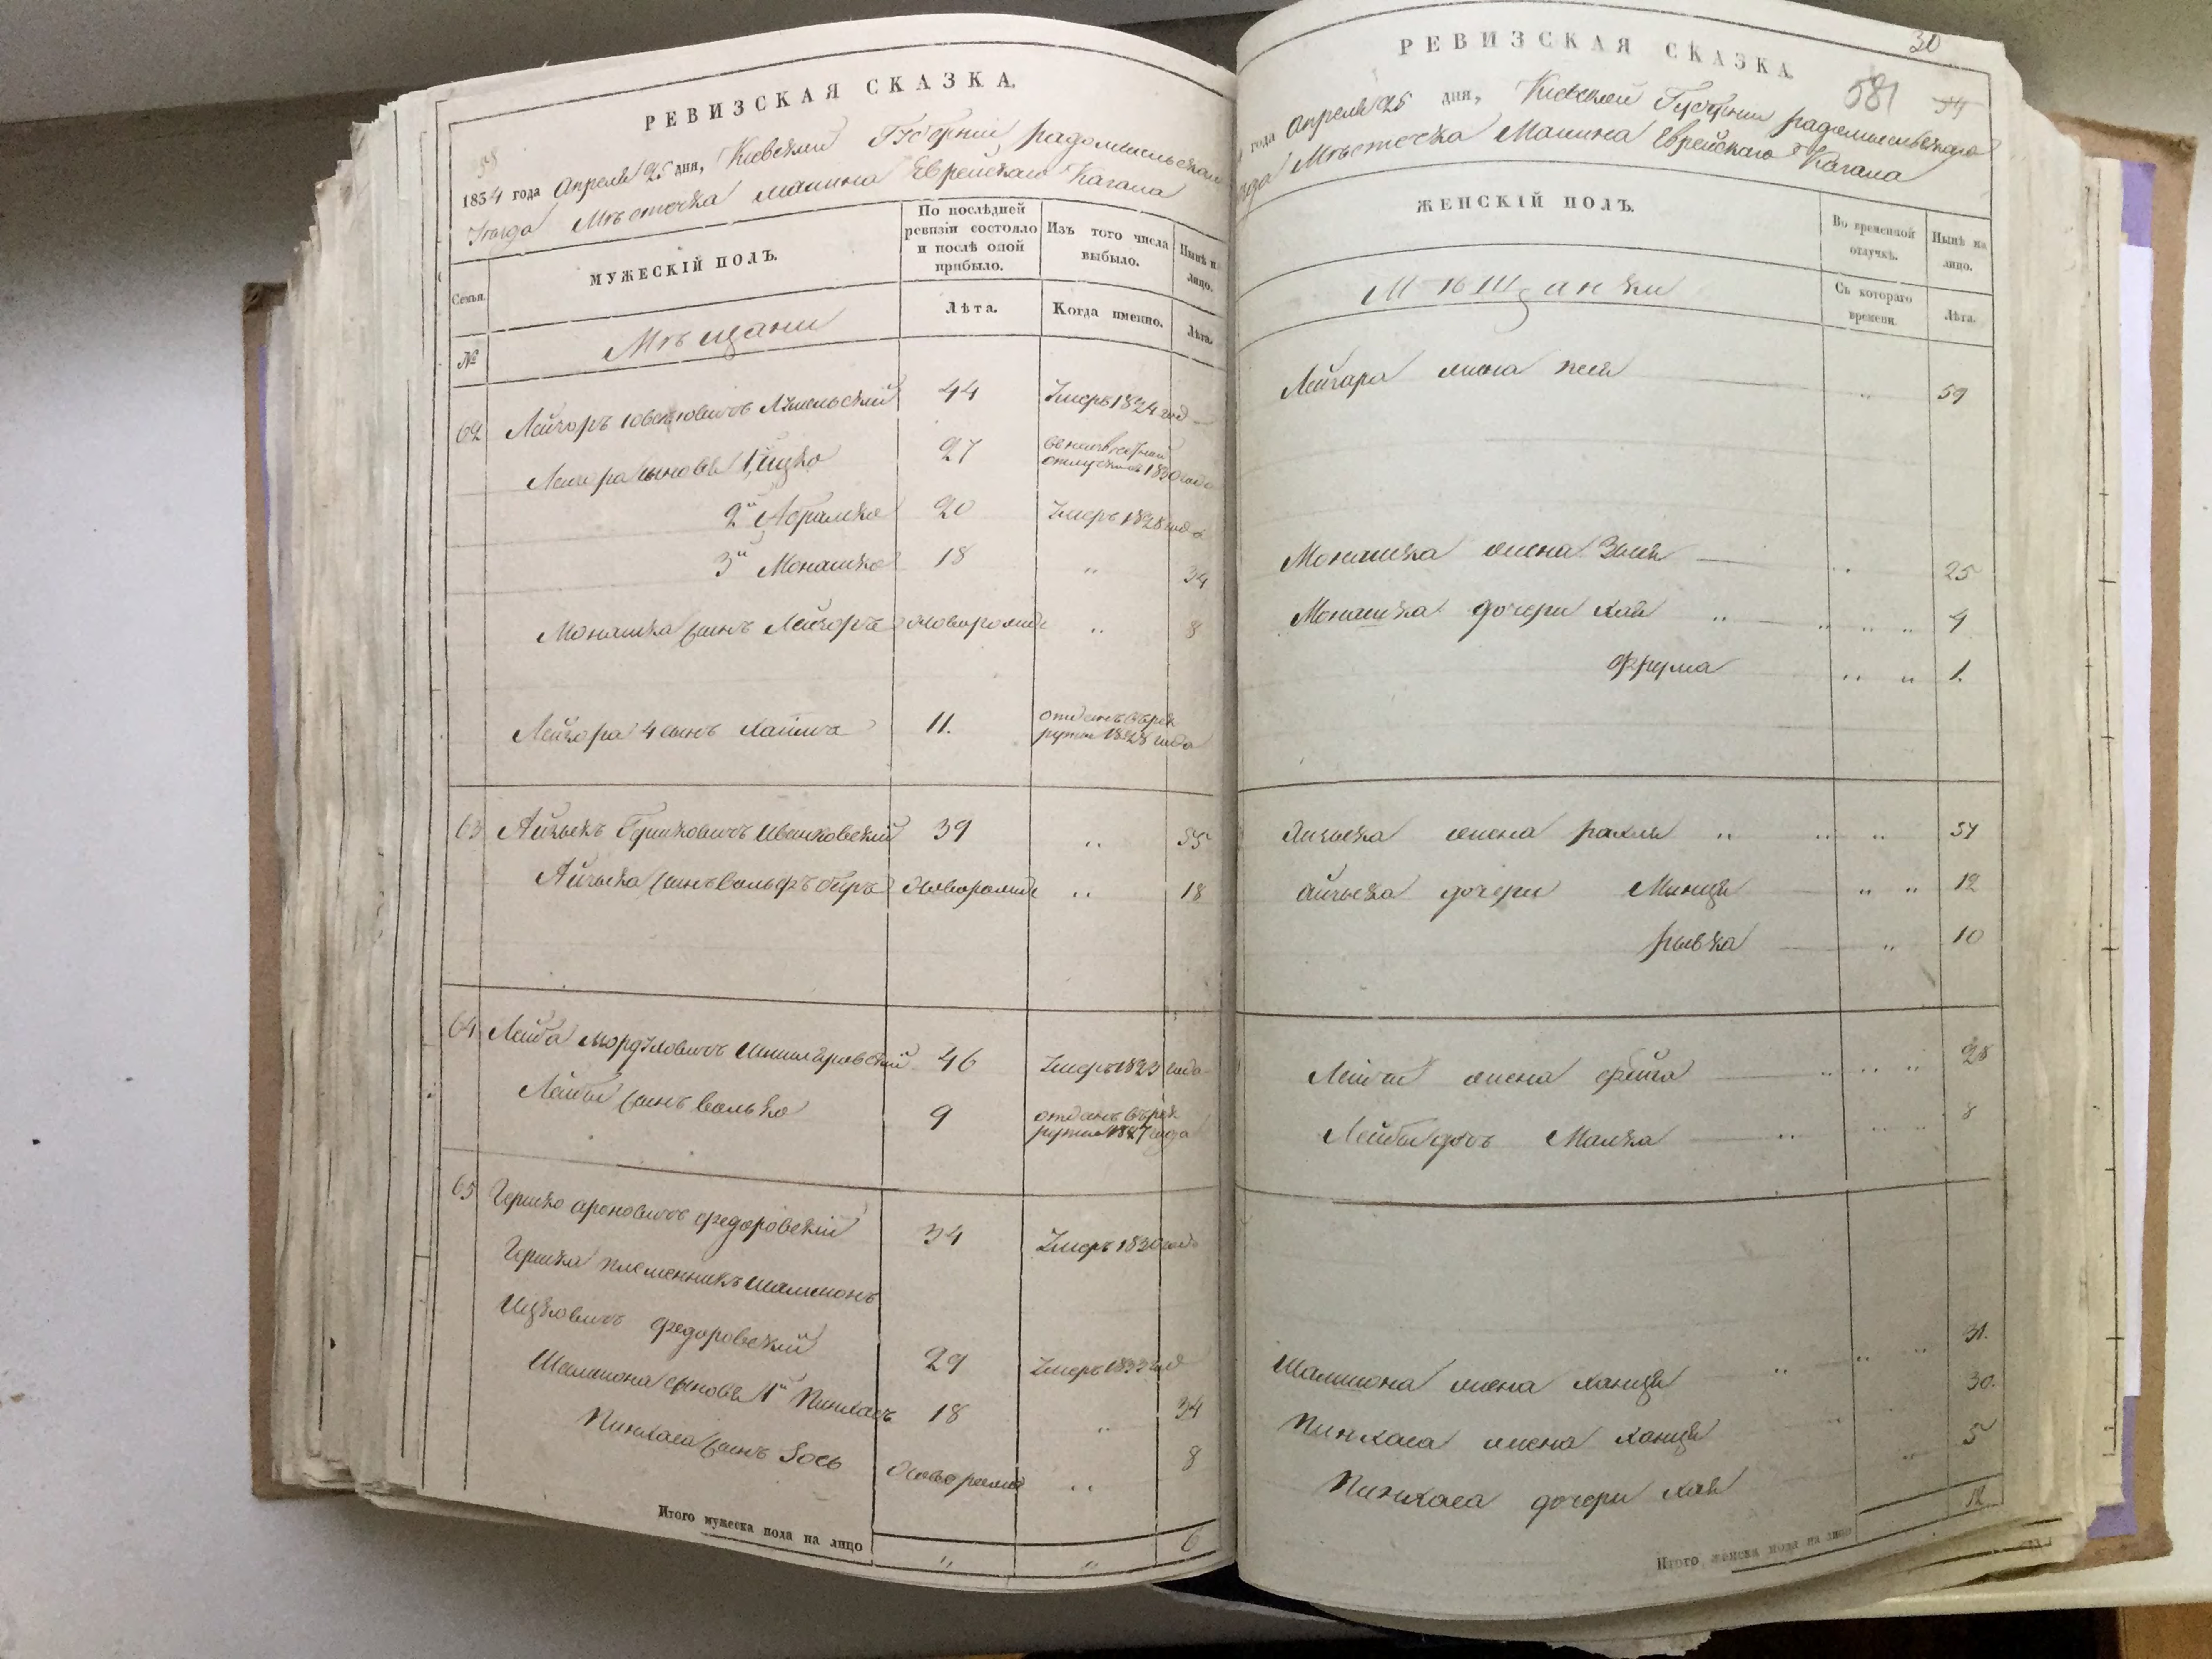 РЕВИЗСКАЯ СКАЗКА.
1834 года Апреля 25 дня, Киевской Губернии, радомысльскаго
Уезда Мѣстечка Малина Еврейскаго Кагала
Семьи.
МУЖЕСКІЙ ПОЛЪ.
По послѣдней ревизіи состояло и послѣ оной прибыло.
Изъ того числа выбыло.
Нынѣ на лицо.
№
Мѣщани
Лѣта.
Когда именно.
Лѣта.
62 Лейзоръ 44 Умеръ 1824 год
Лейзора сыновья 1й Ицко 27 отлучки 1830 года
2й Абрамко 20 Умеръ 1828 года
3й Монашко 18 " 34
Монашка сынъ Лейзоръ новорожде " 8
Лейзора 4 сынъ Хаимъ 11. отданъ въ рек
руты 1828 года
63 Айзыкъ Гершковичъ Иванковскій 39 " 55
Айзыка сынъ Вольфъ Беръ новорожде " 18
64 Лейба Мордковичъ 46 Умеръ 1823 года
Лейбы сынъ Волько 9 отданъ въ рек
руты 1827 года
65 Гершко Ароновичъ Федоровскій 34 Умеръ 1830 года
Гершка племенникъ Шлиомонъ
Ицковичъ Федоровскій 29 Умеръ 1833 год
сыновья 1й Пинхасъ 18 " 34
Пинхаса сынъ Іось новорожд " 8
Итого мужеска пола на лицо " " 6
РЕВИЗСКАЯ СКАЗКА.
30
581 54
года Апреля 25 дня, Киевской Губернии радомысльскаго
зда Мѣстечка Малина Еврейскаго Кагала
ЖЕНСКІЙ ПОЛЪ.
Во временной отлучкѣ.
Нынѣ на лицо.
Мѣщанки
Съ котораго времени.
Лѣта.
Лейзора жена Песя " 59
Монашка жена Зыся " 25
Монашка дочери Хая " " " 4
Фрума " " 1.
Айзыка жена Рахля " " " 51
Айзыка дочери Минця " " 12
Рывка " 10
Лейбы жена Фейга " " " 28
Лейбы дочь Малка " " " 8
жена Ханця " " " 31.
Пинхаса жена Ханця 30.
Пинхаса дочери Хая " 5
Итого женска пола на лицо 12